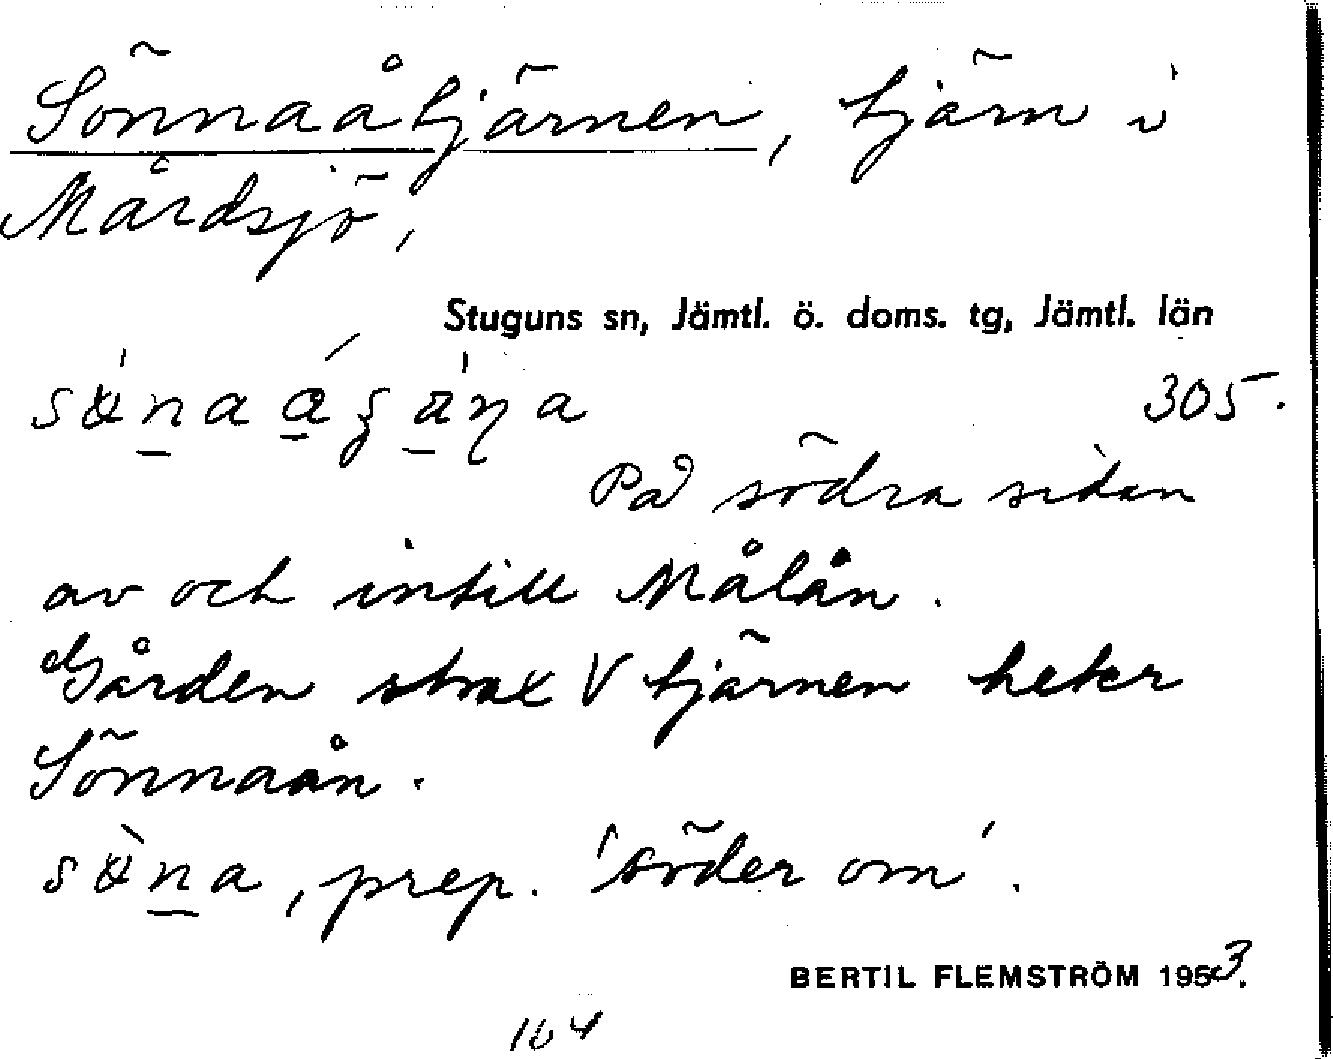 Sönnaåtjärnen, tjärn i
Mårdsjö,
Stuguns sn, Jämtl. ö. doms. tg, Jämtl. län
305.
På södra sidan
av och intill Målån.
Gården strax V tjärnen heter
Sönnaån.
, prep. 'söder om'.
BERTIL FLEMSTRÖM 1953.
164